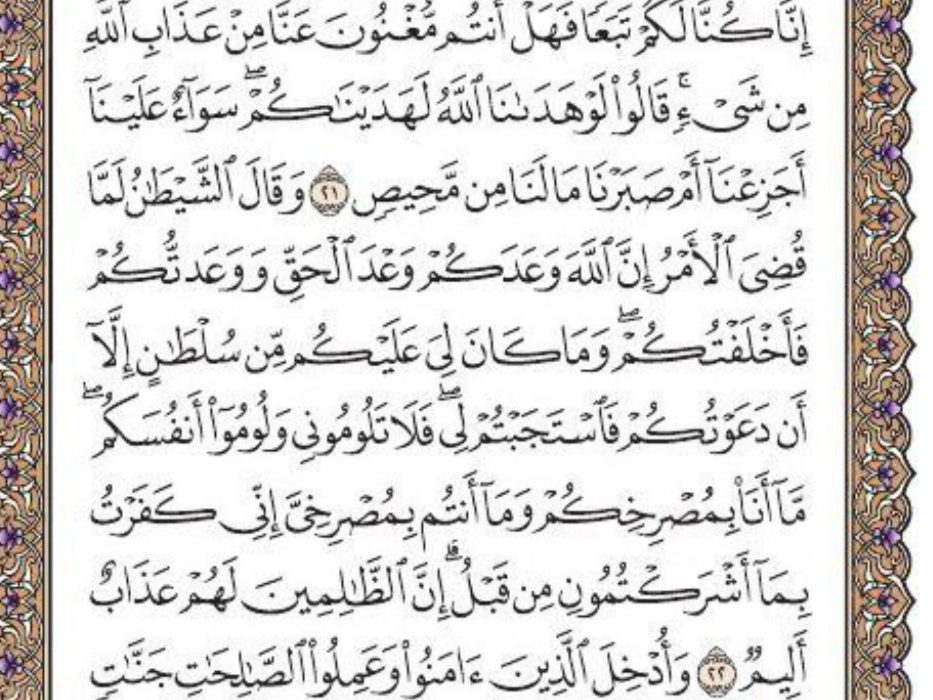 إِنَّا كُنَّا لَكُمْ تَبَعًا فَهَلْ أَنتُم مُّغْنُونَ عَنَّا مِنْ عَذَابِ ٱللَّهِ
مِن شَىْءٍۚ قَالُوا۟ لَوْ هَدَىٰنَا ٱللَّهُ لَهَدَيْنَٰكُمْۖ سَوَآءٌ عَلَيْنَآ
أَجَزِعْنَآ أَمْ صَبَرْنَا مَا لَنَا مِن مَّحِيصٍ ٢١ وَقَالَ ٱلشَّيْطَٰنُ لَمَّا
قُضِىَ ٱلْأَمْرُ إِنَّ ٱللَّهَ وَعَدَكُمْ وَعْدَ ٱلْحَقِّ وَوَعَدتُّكُمْ
فَأَخْلَفْتُكُمْۖ وَمَا كَانَ لِىَ عَلَيْكُم مِّن سُلْطَٰنٍ إِلَّآ
أَن دَعَوْتُكُمْ فَٱسْتَجَبْتُمْ لِىۖ فَلَا تَلُومُونِى وَلُومُوٓا۟ أَنفُسَكُمۖ
مَّآ أَنَا۠ بِمُصْرِخِكُمْ وَمَآ أَنتُم بِمُصْرِخِىَّ إِنِّى كَفَرْتُ
بِمَآ أَشْرَكْتُمُونِ مِن قَبْلُۗ إِنَّ ٱلظَّٰلِمِينَ لَهُمْ عَذَابٌ
أَلِيمٌ ٢٢ وَأُدْخِلَ ٱلَّذِينَ ءَامَنُوا۟ وَعَمِلُوا۟ ٱلصَّٰلِحَٰتِ جَنَّٰتٍ